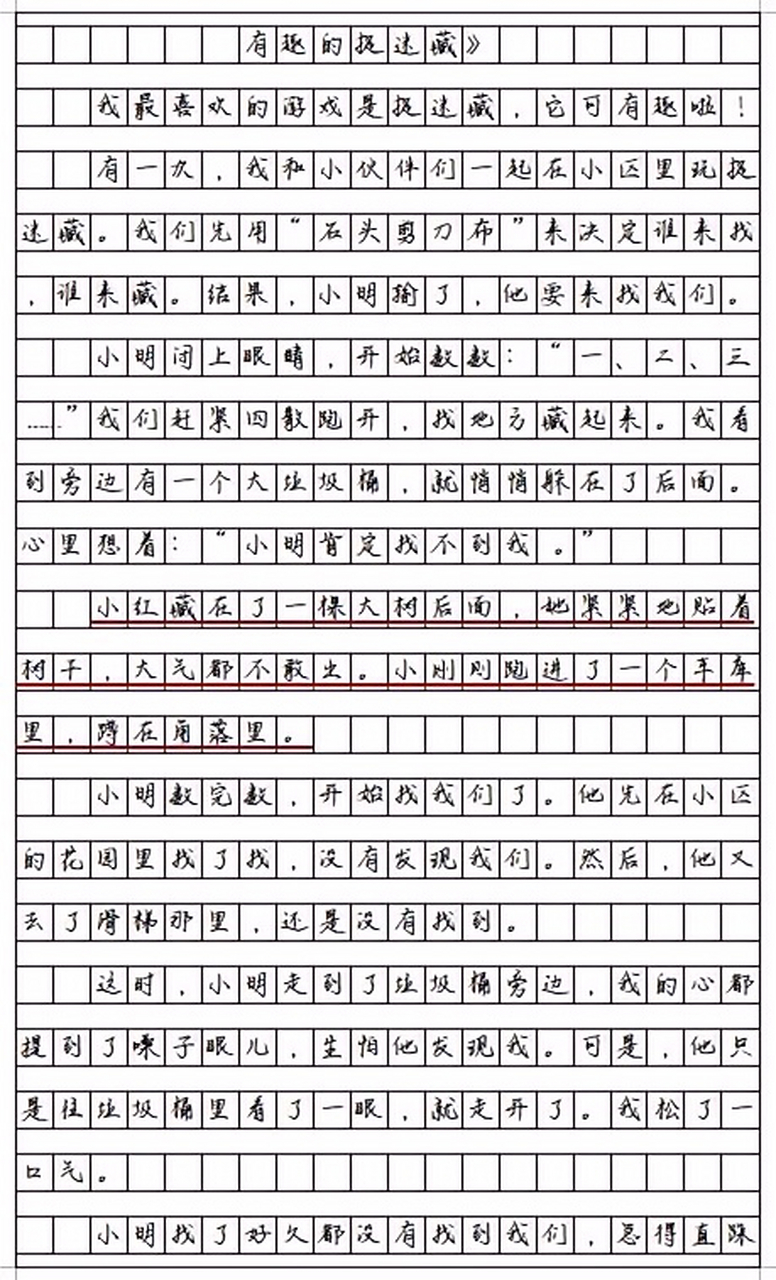 有趣的捉迷藏》
我最喜欢的游戏是捉迷藏，它可有趣啦！
有一次，我和小伙伴们一起在小区里玩捉
迷藏。我们先用“石头剪刀布”来决定谁来找
，谁来藏。结果，小明输了，他要来找我们。
小明闭上眼睛，开始数数：“一、二、三
……”我们赶紧四散跑开，找地方藏起来。我看
到旁边有一个大垃圾桶，就悄悄躲在了后面。
心里想着：“小明肯定找不到我。”
小红藏在了一棵大树后面，她紧紧地贴着
树干，大气都不敢出。小刚则跑进了一个车库
里，蹲在角落里。
小明数完数，开始找我们了。他先在小区
的花园里找了找，没有发现我们。然后，他又
去了滑梯那里，还是没有找到。
这时，小明走到了垃圾桶旁边，我的心都
提到了嗓子眼儿，生怕他发现我。可是，他只
是往垃圾桶里看了一眼，就走开了。我松了一
口气。
小明找了好久都没有找到我们，急得直跺